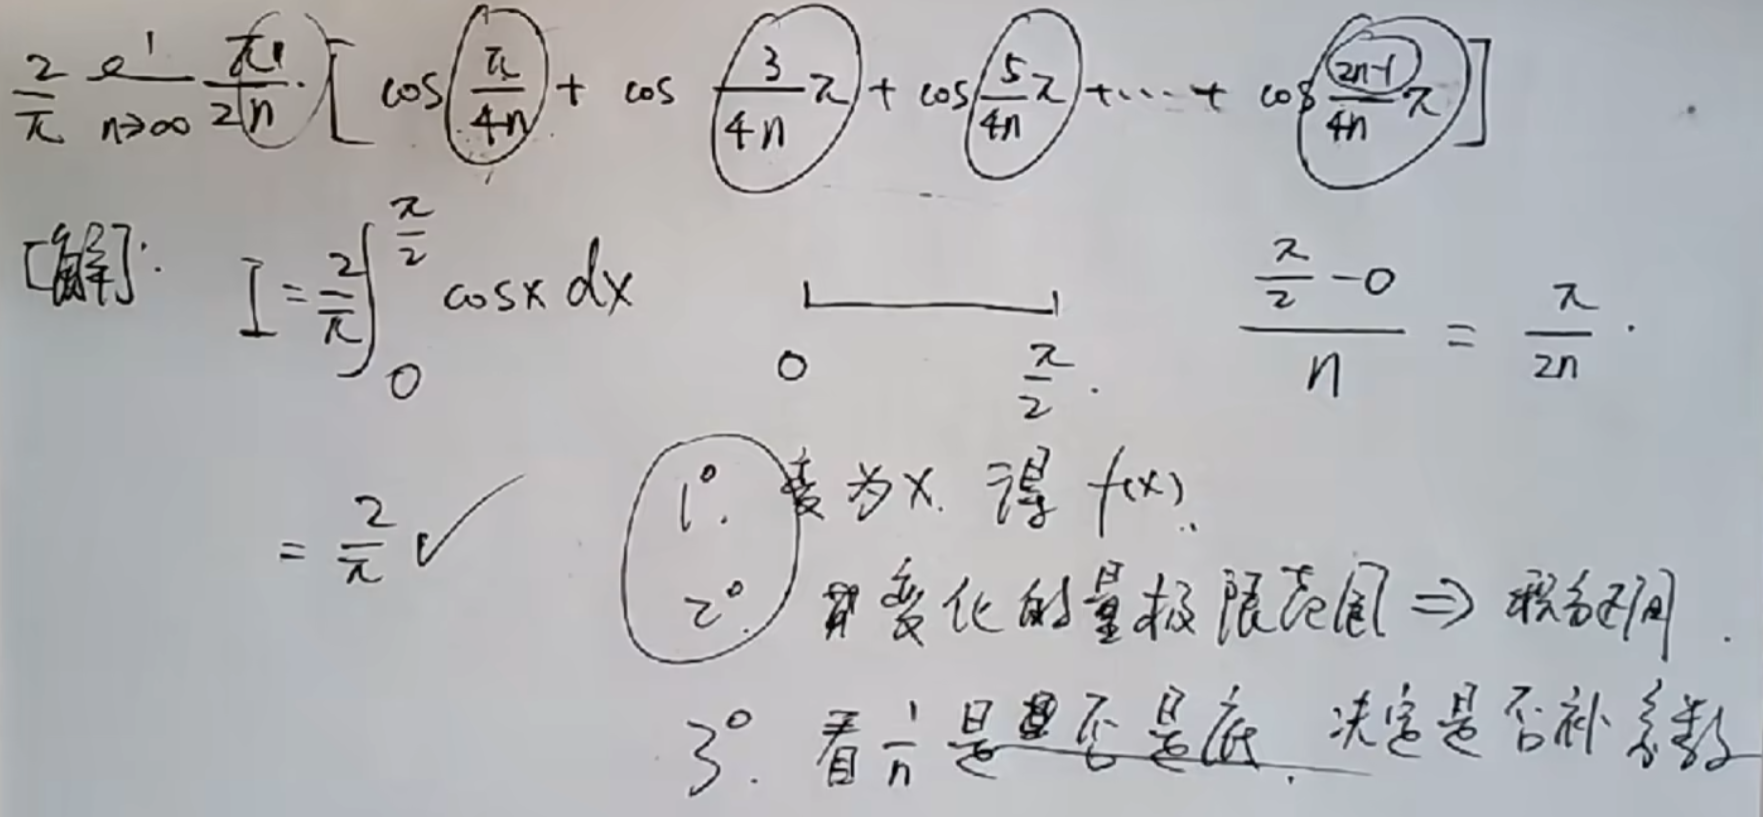 2/π lim n→∞ π1/2n · [ cos π/4n + cos 3/4n π + cos 5/4n π + ⋯ + cos 2n-1/4n π ]
[解]: I = 2/π ∫₀^{π/2} cosx dx 0 π/2 . (π/2 - 0)/n = π/2n .
= 2/π ✓ 1°. 变为x. 得 f(x).
2°. 变化的量极限范围 ⇒ 积分区间.
3°. 看 1/n 是否是底. 决定是否补系数